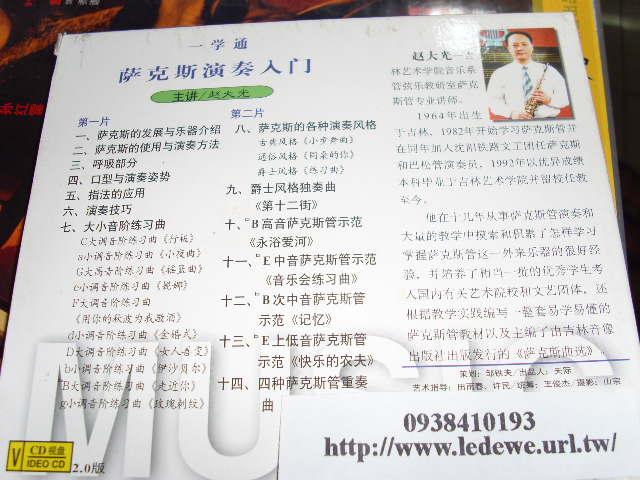 一学通
萨克斯演奏入门
主讲/赵大光
第一片
一、萨克斯的发展与乐器介绍
二、萨克斯的使用与演奏方法
三、呼吸部分
四、口型与演奏姿势
五、指法的应用
六、演奏技巧
七、大小音阶练习曲
C大调音阶练习曲《行板》
a小调音阶练习曲《小夜曲》
G大调音阶练习曲
e小调音阶练习曲
F大调音阶练习曲
《用你的秋波为我敬酒》
d小调音阶练习曲《金婚式》
D大调音阶练习曲《女人善变》
b小调音阶练习曲《伊沙贝尔》
♭B大调音阶练习曲《走近你》
g小调音阶练习曲《玫瑰刺纹》
第二片
八、萨克斯的各种演奏风格
古典风格《小步舞曲》
通俗风格《同桌的你》
爵士风格《练习曲》
九、爵士风格独奏曲
《第十二街》
十、♭B高音萨克斯管示范
《永浴爱河》
十一、♭E中音萨克斯管示范
《音乐会练习曲》
十二、♭B次中音萨克斯管
示范《记忆》
十三、♭E上低音萨克斯管
示范《快乐的农夫》
十四、四种萨克斯管重奏
曲
赵大光—吉
林艺术学院音乐系
管弦乐教研室萨克
斯管专业讲师。
1964年出生
于吉林,1982年开始学习萨克斯管并
在同年加入沈阳铁路文工团任萨克斯
和巴松管演奏员,1992年以优异成绩
本科毕业于吉林艺术学院并留校任教
至今。
他在十几年从事萨克斯管演奏和
大量的教学中探索和积累了怎样学习
掌握萨克斯管这一外来乐器的很好经
验,并培养了相当一批的优秀学生考
入国内有关艺术院校和文艺团体,还
根据教学实践编写一整套易学易懂的
萨克斯管教材以及主编了由吉林音像
出版社出版发行的《萨克斯曲选》
策划:邹铁夫/出品人:天际
艺术指导:田雨春、许民/统筹:王俊杰/摄影:山宗
MU
V
CD视盘
VIDEO CD
2.0版
0938410193
http://www.ledewe.url.tw/